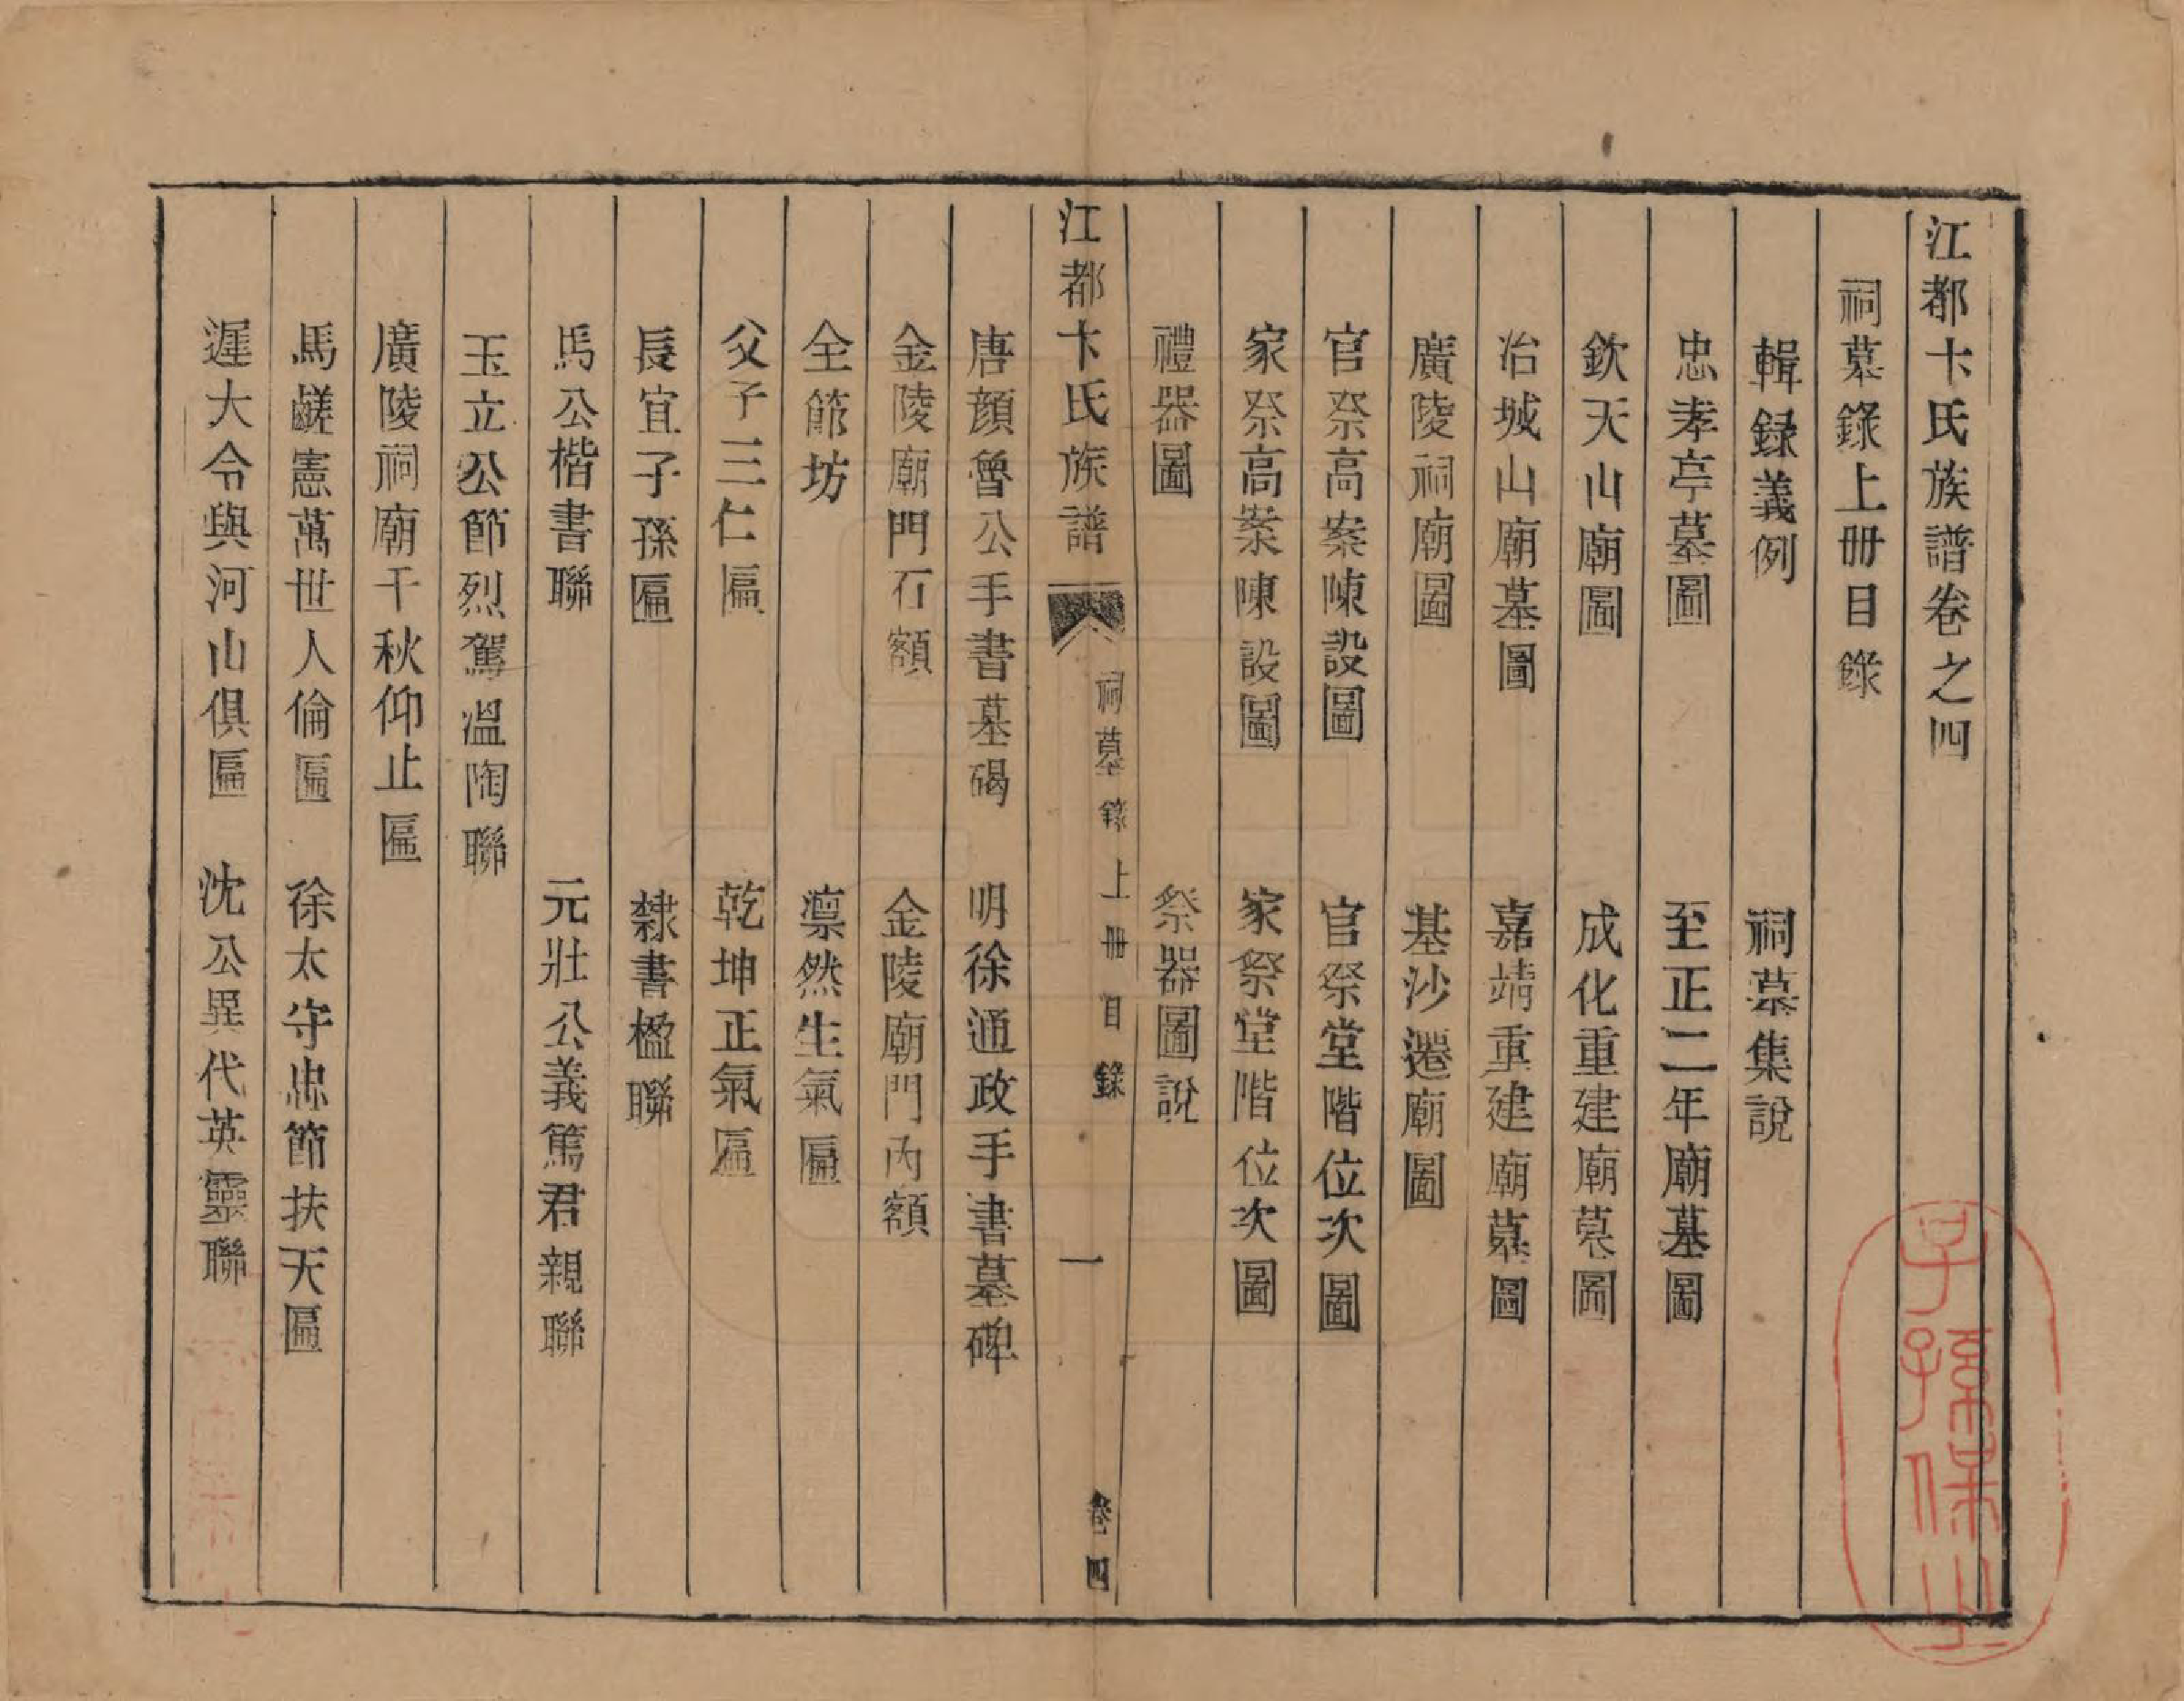 江都卞氏族譜卷之四
祠墓錄上冊目錄
輯録義例　祠墓集說
忠孝亭墓圖　至正二年廟墓圖
欽天山廟圖　成化重建廟墓圖
冶城山廟墓圖　嘉靖重建廟墓圖
廣陵祠廟圖　基沙遷廟圖
官祭高案陳設圖　官祭堂階位次圖
家祭高案陳設圖　家祭堂階位次圖
禮器圖　祭器圖說
江都卞氏族譜　祠墓錄上冊目錄　一　卷四
唐顔魯公手書墓碣　明徐通政手書墓碑
金陵廟門石額　金陵廟門內額
全節坊　凛然生氣匾
父子三仁匾　乾坤正氣匾
長宜子孫匾　隸書楹聯
馬公楷書聯　元壯公義篤君親聯
玉立公節烈駕溫陶聯
廣陵祠廟千秋仰止匾
馬鹺憲萬世人倫匾　徐太守忠節扶天匾
遲大令與河山俱匾　沈公異代英靈聯
子孫保之